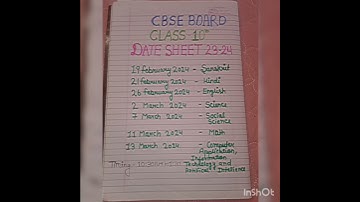 CBSE BOARD
CLASS-10th
DATE SHEET 23-24
19 February 2024 - Sanskrit
21 February 2024 - Hindi
26 February 2024 - English
2 March 2024 - Science
7 March 2024 - Social
Science
11 March 2024 - Math
13 March 2024 - Computer
Application,
Information
Technology and
Artificial Intelligence
Timing - 10:30AM
InShOt